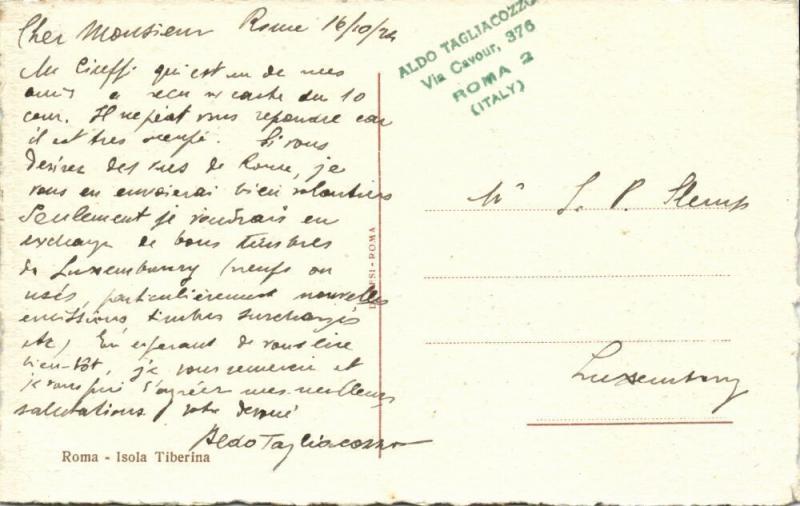 Cher Monsieur Rome 16/10/24
Mr Cireffi qui est un de mes
amis a reçu ve carte du 10
cour. Il ne peut vous repondre car
il est tres occupé. Si vous
desirez des vues de Rome, je
vous en envoierai bien volontiers
Seulement je voudrais en
exchange de bons timbres
de Luxembourg (neufs ou
usés, particulièrement nouvelles
emissions timbres surchargés
etc) En esperant de vous lire
bien-tôt, je vous remercie et
je vous prie d'agréer mes meilleurs
salutations votre devoué
Aldo Tagliacozzo
Roma - Isola Tiberina
ALDO TAGLIACOZZO
Via Cavour, 376
ROMA 2
(ITALY)
ROMA
Mr J. P. Stemps
Luxembourg